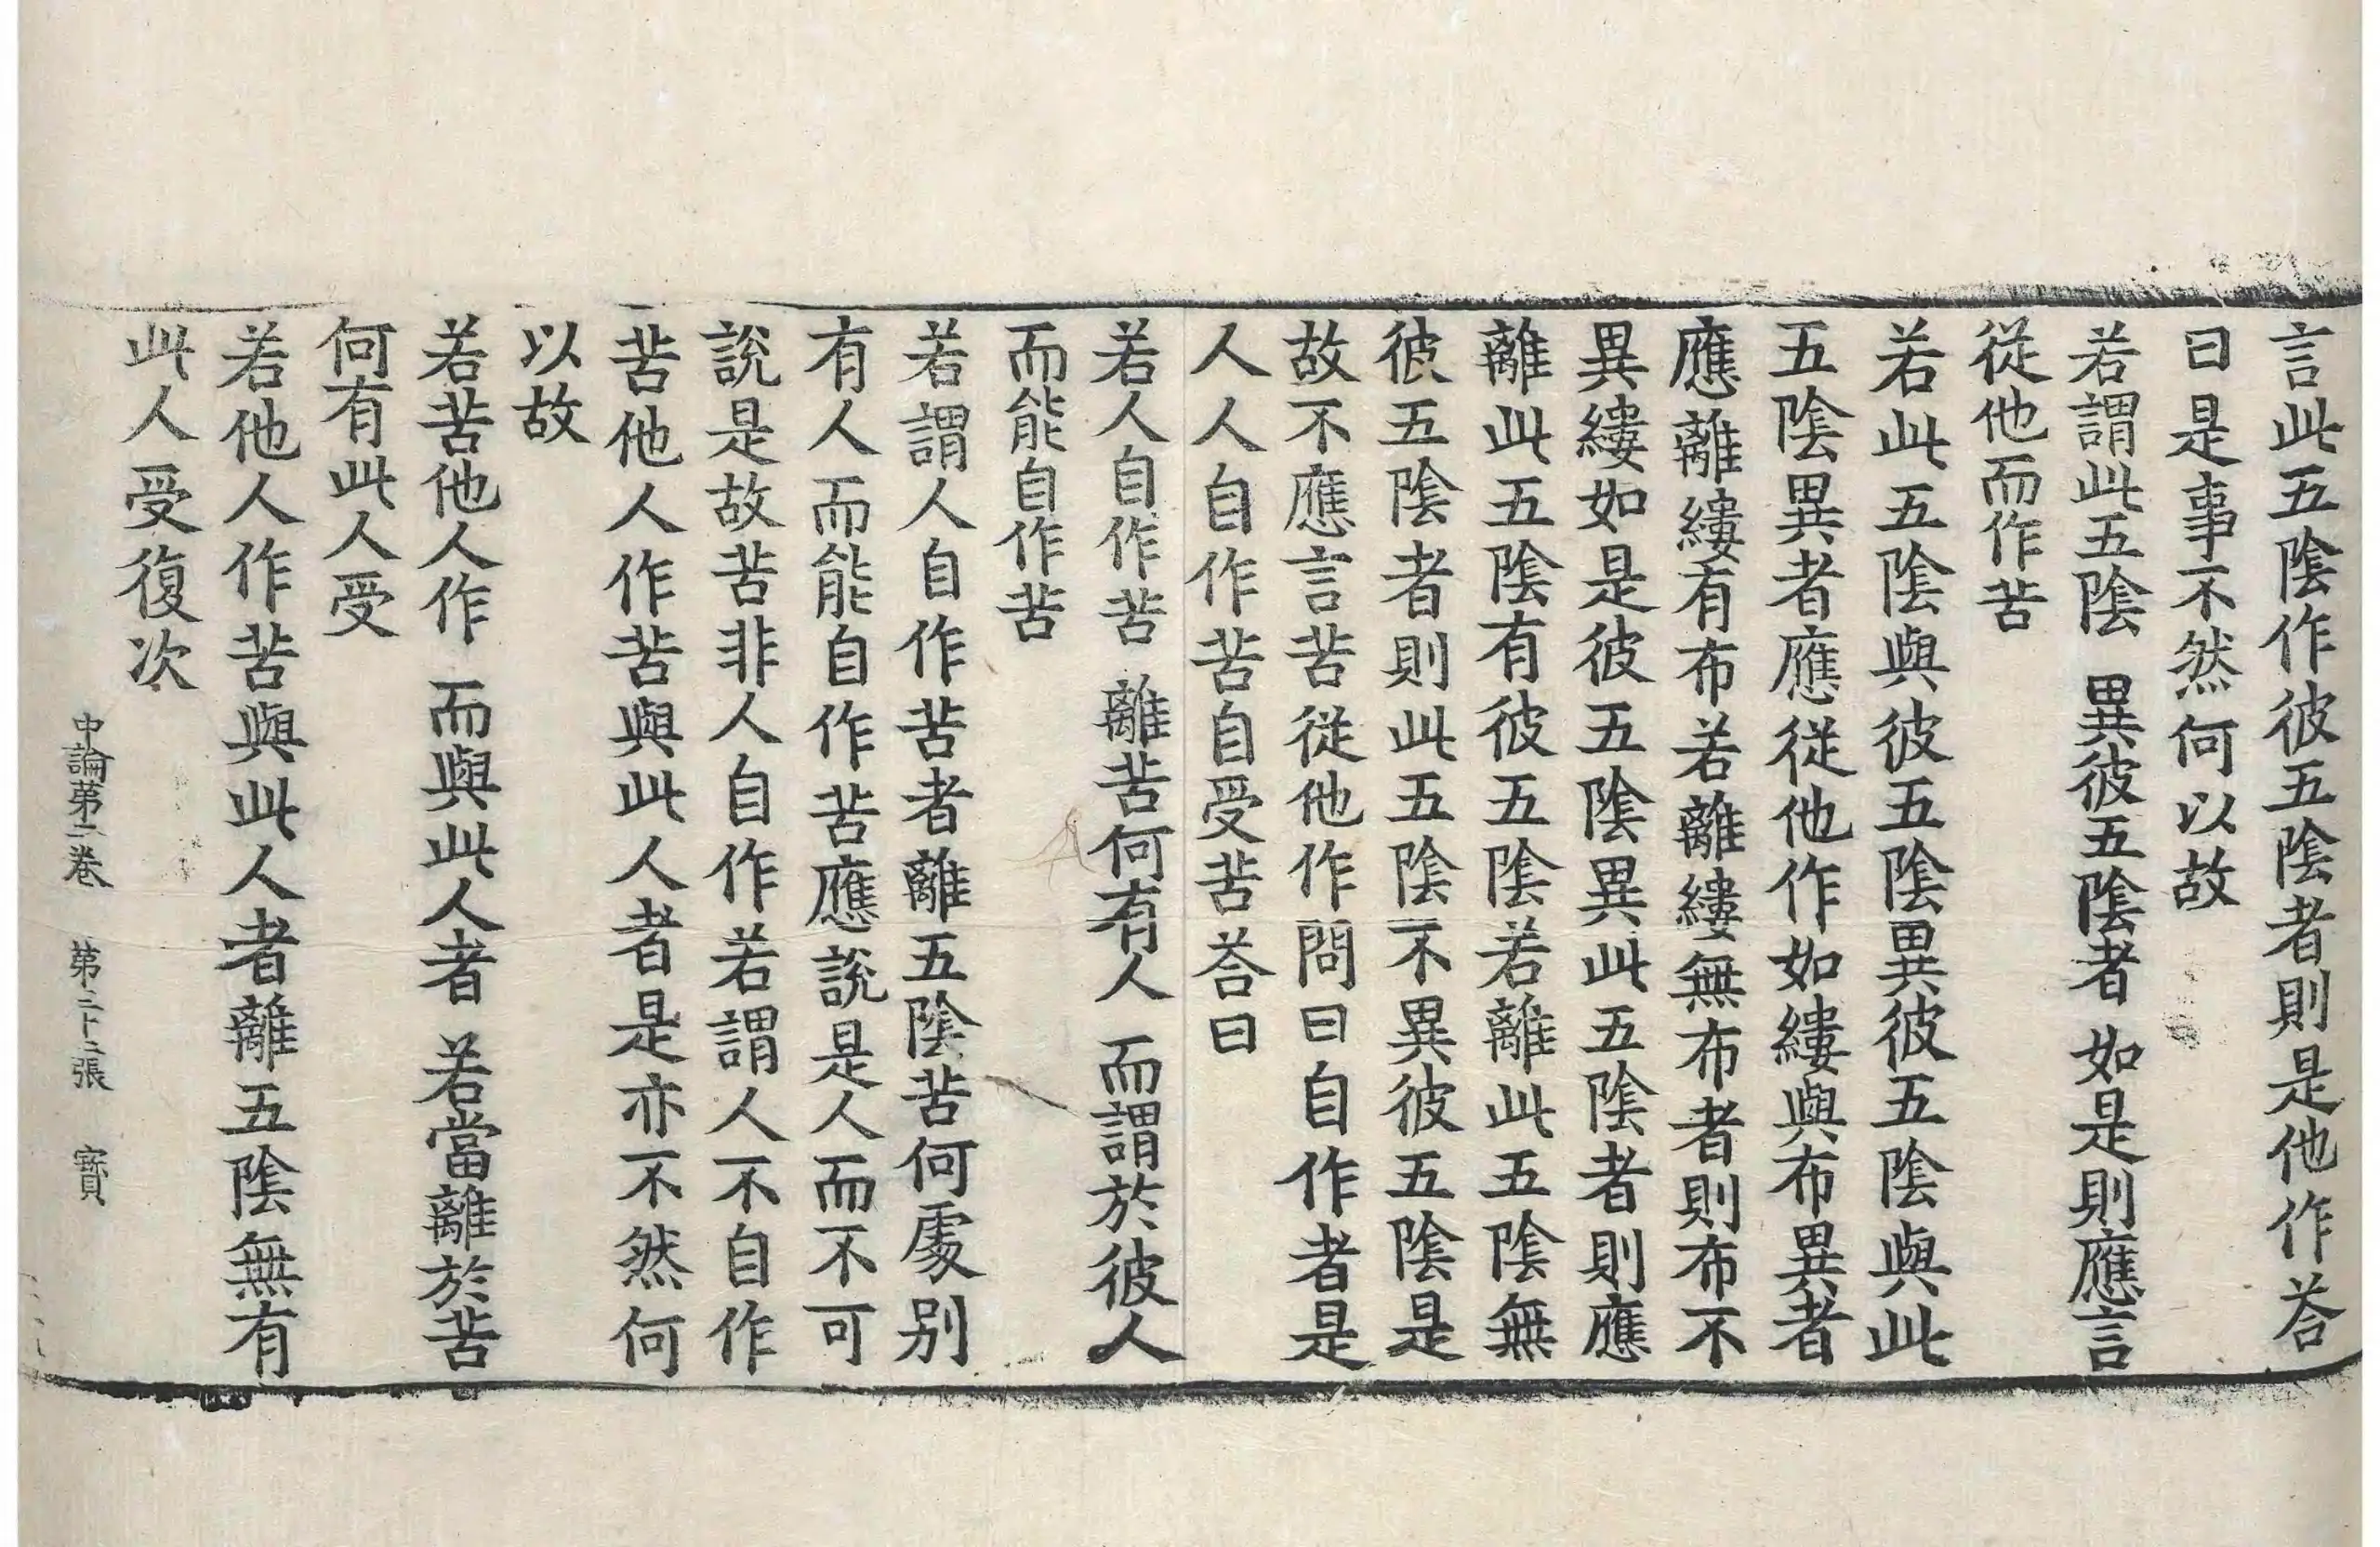 言此五陰作彼五陰者則是他作荅
曰是事不然何以故
若謂此五陰　異彼五陰者　如是則應言
從他而作苦
若此五陰與彼五陰異彼五陰與此
五陰異者應從他作如縷與布異者
應離縷有布若離縷無布者則布不
異縷如是彼五陰異此五陰者則應
離此五陰有彼五陰若離此五陰無
彼五陰者則此五陰不異彼五陰是
故不應言苦從他作問曰自作者是
人人自作苦自受苦荅曰
若人自作苦　離苦何有人　而謂於彼人
而能自作苦
若謂人自作苦者離五陰苦何處別
有人而能自作苦應說是人而不可
說是故苦非人自作若謂人不自作
苦他人作苦與此人者是亦不然何
以故
若苦他人作　而與此人者　若當離於苦
何有此人受
若他人作苦與此人者離五陰無有
此人受復次
中論第二卷　第二十二張　寳